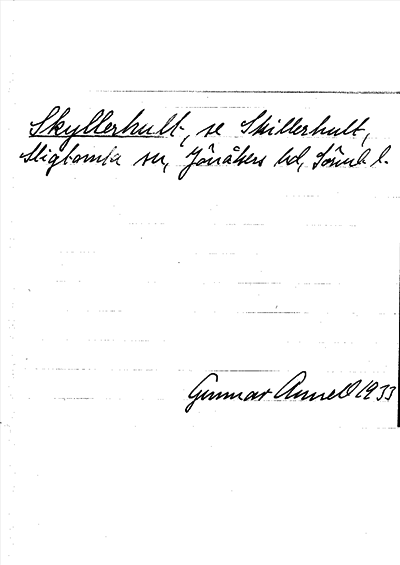 Skyllerhult, se Skillerhult,
Stigtomta sn, Jönåkers hd, Sörml. l.
Gunnar Annell 1933